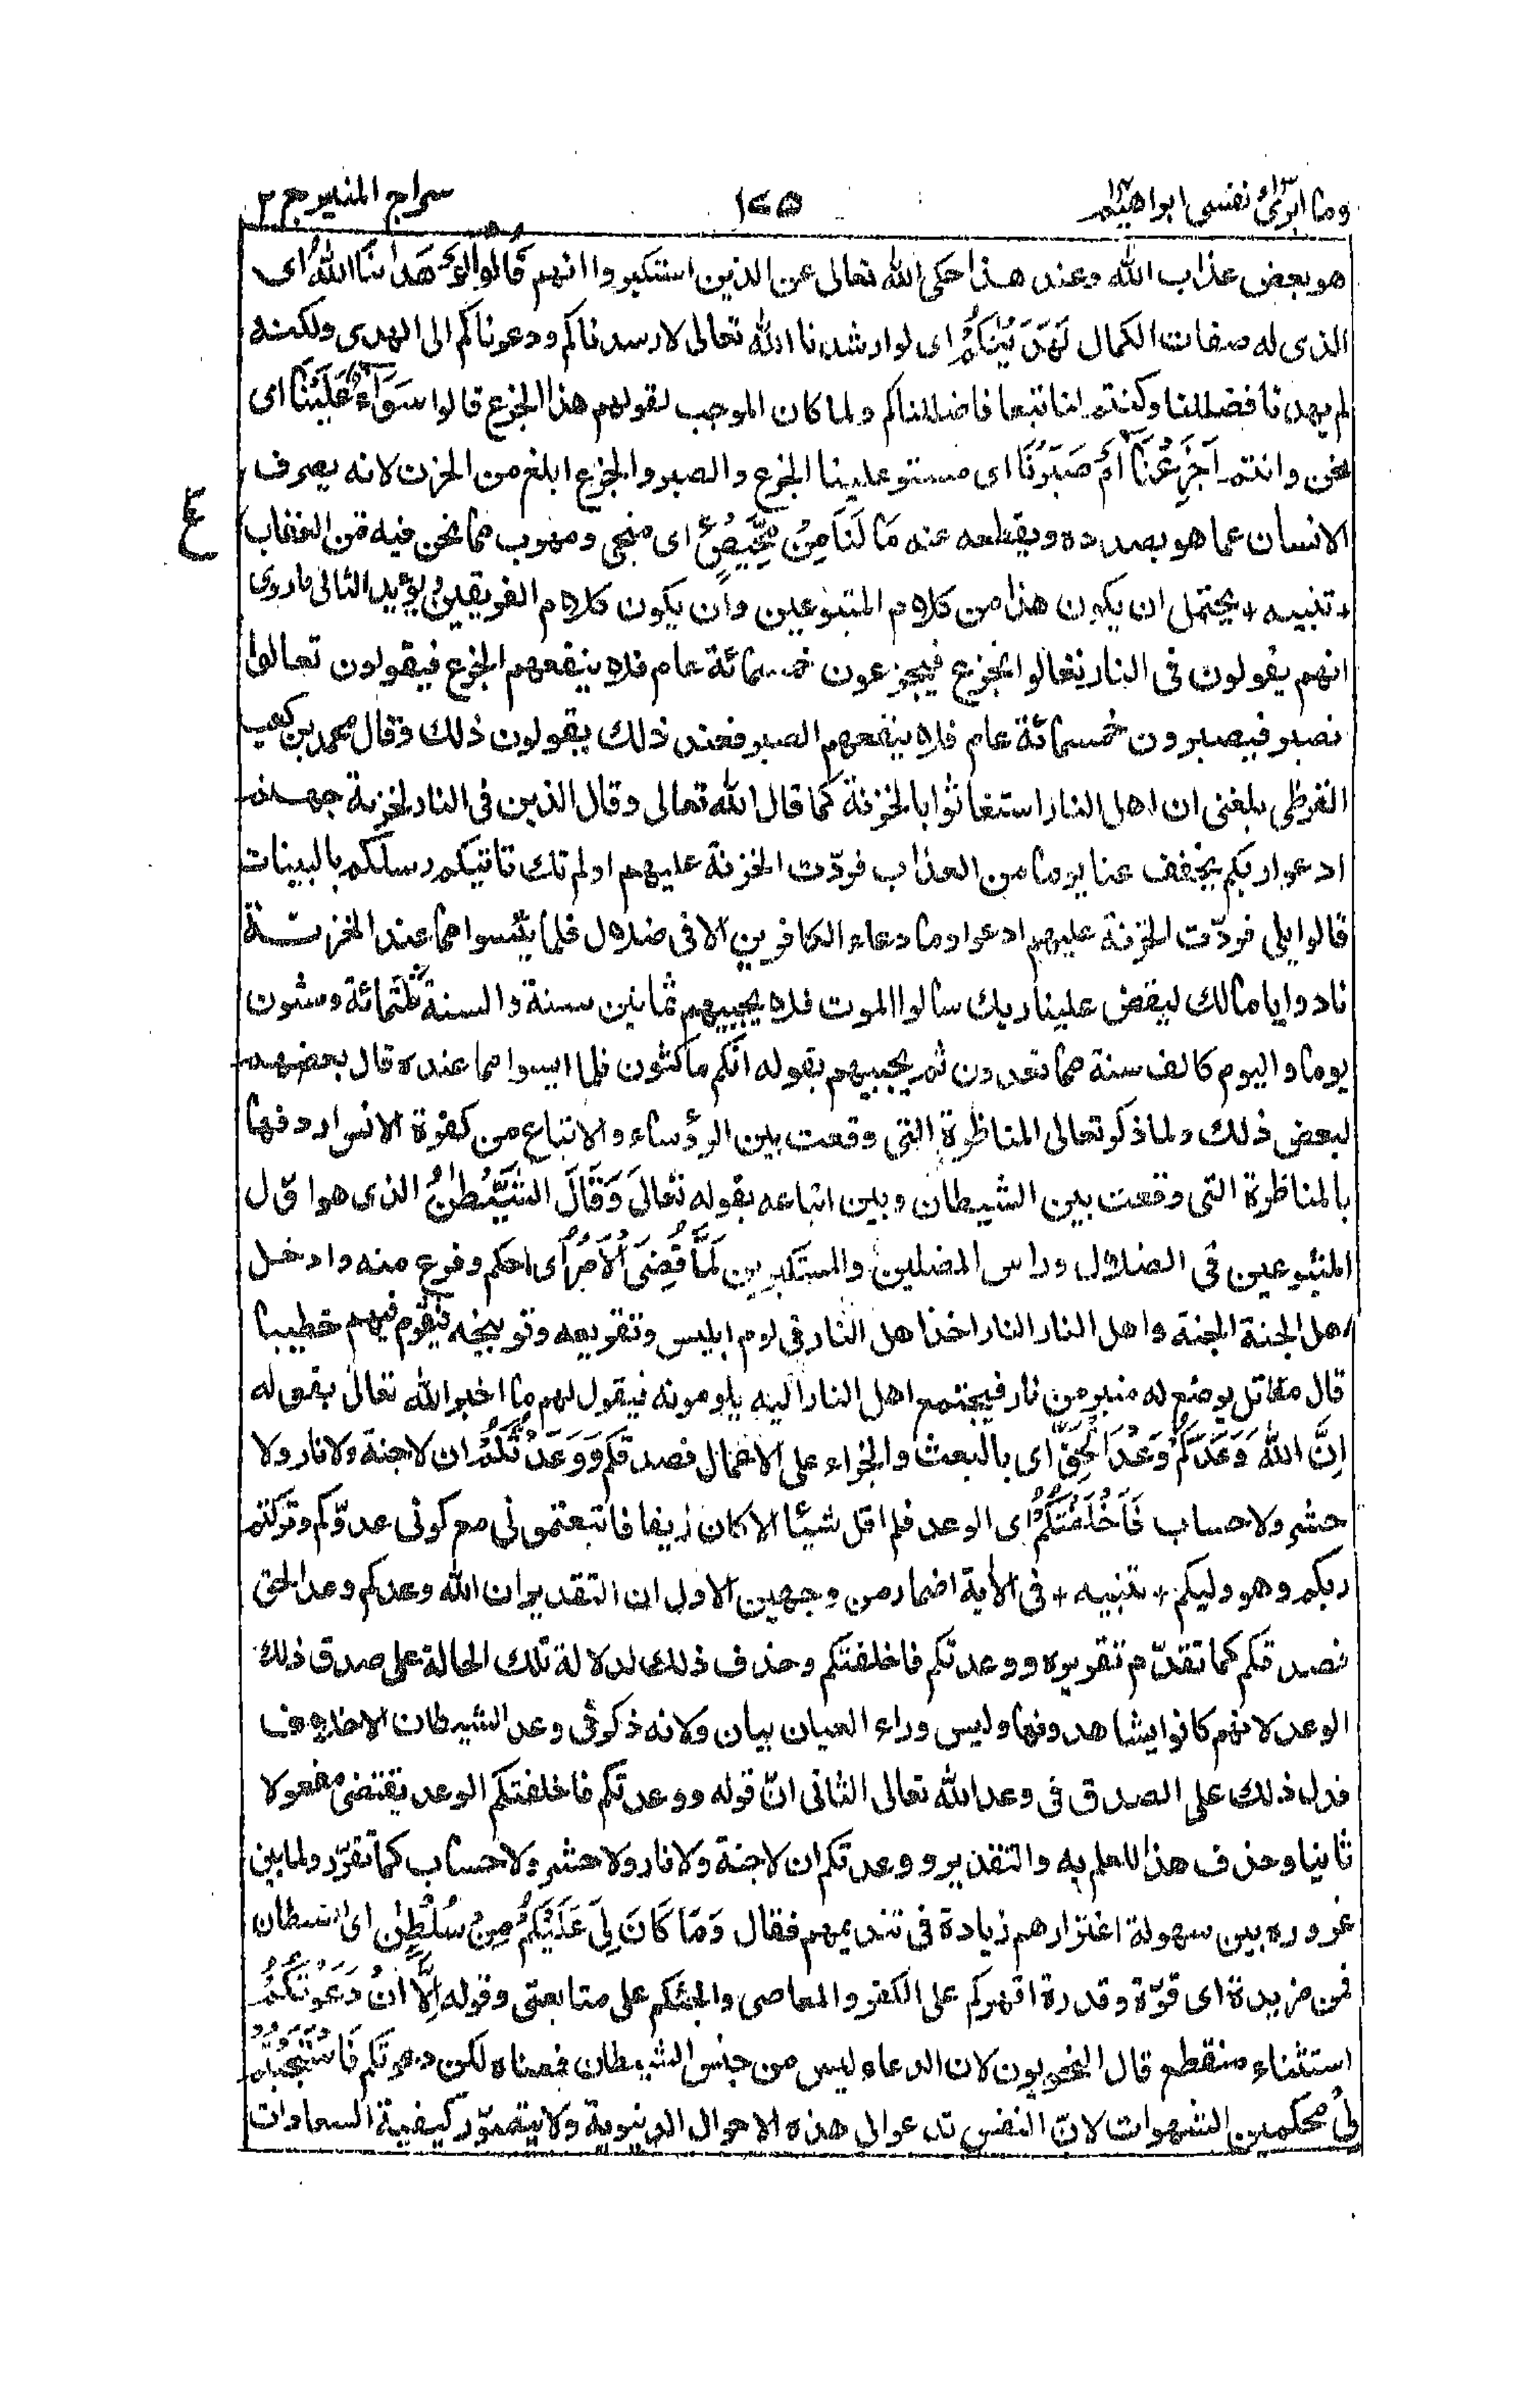 وما ابرئ نفسى ابراهيم ١٧٥ سراج المنير ج ٢
هو بعض عذاب الله وعند هذا حكى الله تعالى عن الذين استكبروا انهم قَالُوا لَوْ هَدٰىنَا اللّٰهُ اى
الذى له صفات الكمال لَهَدَيْنٰكُمْ اى لو ارشدنا الله تعالى لارشدناكم ودعوناكم الى الهدى ولكنه
لم يهدنا فضللنا وكنتم لنا تبعا فاضللناكم ولما كان الموجب لقولهم هذا الجزع قالوا سَوَآءٌ عَلَيْنَآ اى
نحن وانتم اَجَزِعْنَآ اَمْ صَبَرْنَا اى مستو علينا الجزع والصبر والجزع ابلغ من الحزن لانه يصرف
الانسان عما هو بصدده ويقطعه عنه مَا لَنَا مِنْ مَّحِيْصٍ اى منجى ومهرب مما نحن فيه من العقاب
ع
+ تنبيه + يحتمل ان يكون هذا من كلام المتبوعين وان يكون كلام الفريقين ويؤيد الثانى ما روى
انهم يقولون فى النار تعالوا نجزع فيجزعون خمسمائة عام فلا ينفعهم الجزع فيقولون تعالوا
نصبر فيصبرون خمسمائة عام فلا ينفعهم الصبر فعند ذلك يقولون ذلك وقال محمد بن كعب
القرظى بلغنى ان اهل النار استغاثوا بالخزنة كما قال الله تعالى وقال الذين فى النار لخزنة جهنم
ادعوا ربكم يخفف عنا يوما من العذاب فردّت الخزنة عليهم اولم تك تاتيكم رسلكم بالبينات
قالوا بلى فردّت الخزنة عليهم ادعوا وما دعاء الكافرين الا فى ضلال فلما يئسوا مما عند الخزنة
نادوا يا مالك ليقض علينا ربك سالوا الموت فلا يجيبهم ثمانين سنة والسنة ثلثمائة وستون
يوما واليوم كالف سنة مما تعدون ثم يجيبهم بقوله انكم ماكثون فلما ايسوا مما عنده قال بعضهم
لبعض ذلك ولما ذكر تعالى المناظرة التى وقعت بين الرؤساء والاتباع من كفرة الانس اردفها
بالمناظرة التى وقعت بين الشيطان وبين اتباعه بقوله تعالى وَقَالَ الشَّيْطٰنُ الذى هو اوّل
المتبوعين فى الضلال وراس المضلين والمستكبرين لَمَّا قُضِىَ الْاَمْرُ اى احكم وفرغ منه وادخل
اهل الجنة الجنة واهل النار النار اخذ اهل النار فى لوم ابليس وتقريعه وتوبيخه فيقوم فيهم خطيبا
قال مقاتل يوضع له منبر من نار فيجتمع اهل النار اليه يلومونه فيقول لهم ما اخبر الله تعالى بقوله
اِنَّ اللّٰهَ وَعَدَكُمْ وَعْدَ الْحَقِّ اى بالبعث والجزاء على الاعمال فصدقكم وَوَعَدْتُّكُمْ ان لا جنة ولا نار ولا
حشر ولا حساب فَاَخْلَفْتُكُمْ اى الوعد فلم اقل شيئا الا كان زيفا فاتبعتمونى مع كونى عدوّكم وتركتم
ربكم وهو وليكم + تنبيه + فى الأية اضمار من وجهين الاول ان التقدير ان الله وعدكم وعد الحق
فصدقكم كما تقدّم تقريره ووعدتكم فاخلفتكم وحذف ذلك لدلالة تلك الحالة على صدق ذلك
الوعد لانهم كانوا يشاهدونها وليس وراء العيان بيان ولانه ذكر فى وعد الشيطان الاخلاف
فدل ذلك على الصدق فى وعد الله تعالى الثانى انّ قوله ووعدتكم فاخلفتكم الوعد يقتضى مفعولا
ثانيا وحذف هذا للعلم به والتقدير ووعدتكم ان لا جنة ولا نار ولا حشر ولا حساب كما تقرّر ولما بين
غروره بين سهولة اغترارهم زيادة فى تنديمهم فقال وَمَا كَانَ لِىَ عَلَيْكُمْ مِّنْ سُلْطٰنٍ اى سلطان
فمن مزيدة اى قوّة وقدرة اقهركم على الكفر والمعاصى والجئكم على متابعتى وقوله اِلَّآ اَنْ دَعَوْتُكُمْ
استثناء منقطع قال النحويون لان الدعاء ليس من جنس الشيطان فمعناه لكن دعوتكم فَاسْتَجَبْتُمْ
لِىْ محكمين الشهوات لانّ النفس تدعو الى هذه الاحوال الدنيوية ولا يتصوّر كيفية السعادات